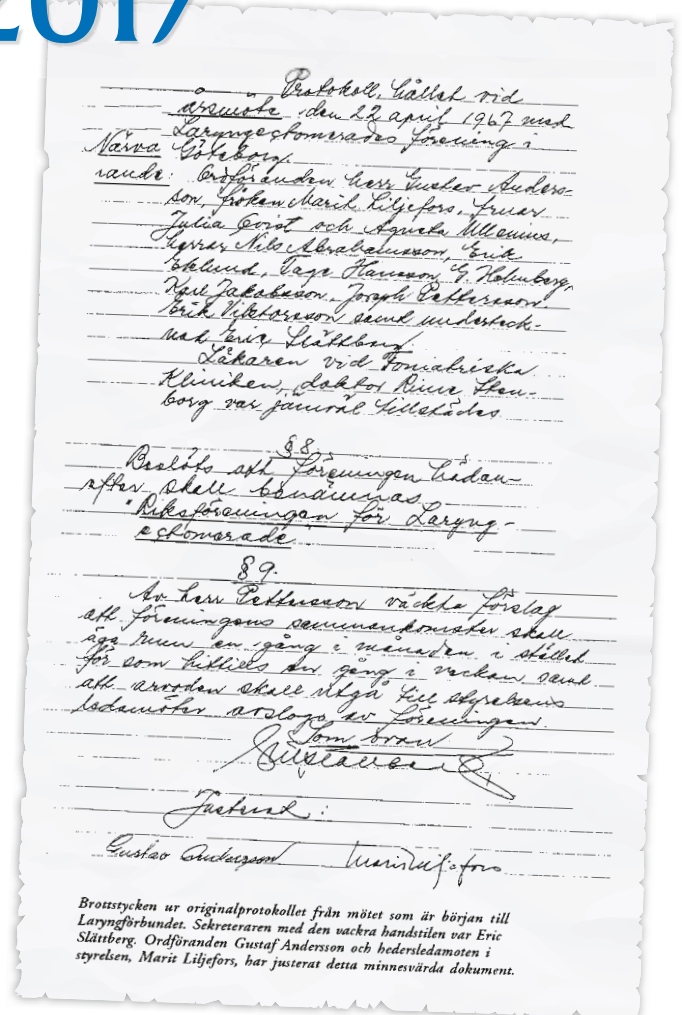 2017
Protokoll, hållet vid
årsmöte den 22 april 1967 med
Laryngectomerades förening i
Göteborg.
Närva
rande: Ordföranden herr Gustav Anders-
son, fröken Marit Liljefors, fruar
Julia Qvist och Agneta Ullenius,
herrar Nils Abrahamsson, Erik
Eklund, Tage Hansson, G. Holmberg,
Karl Jakobsson, Joseph Pettersson,
Erik Viktorsson samt underteck-
nad Eric Slättberg.
Läkaren vid Foniatriska
Kliniken, doktor Rune Sten-
borg var jämväl tillstädes
§ 8.
Beslöts att föreningen hädan-
efter skall benämnas
"Riksföreningen för Laryng-
ectomerade
§ 9.
Av herr Pettersson väckta förslag
att föreningens sammankomster skall
äga rum en gång i månaden i stället
för som hittills en gång i veckan samt
att arvoden skall utgå till styrelsens
ledamöter avslogs av föreningen.
Som ovan
Justerat:
Gustav Andersson Marit Liljefors
Brottstycken ur originalprotokollet från mötet som är början till
Laryngförbundet. Sekreteraren med den vackra handstilen var Eric
Slättberg. Ordföranden Gustaf Andersson och hedersledamoten i
styrelsen, Marit Liljefors, har justerat detta minnesvärda dokument.